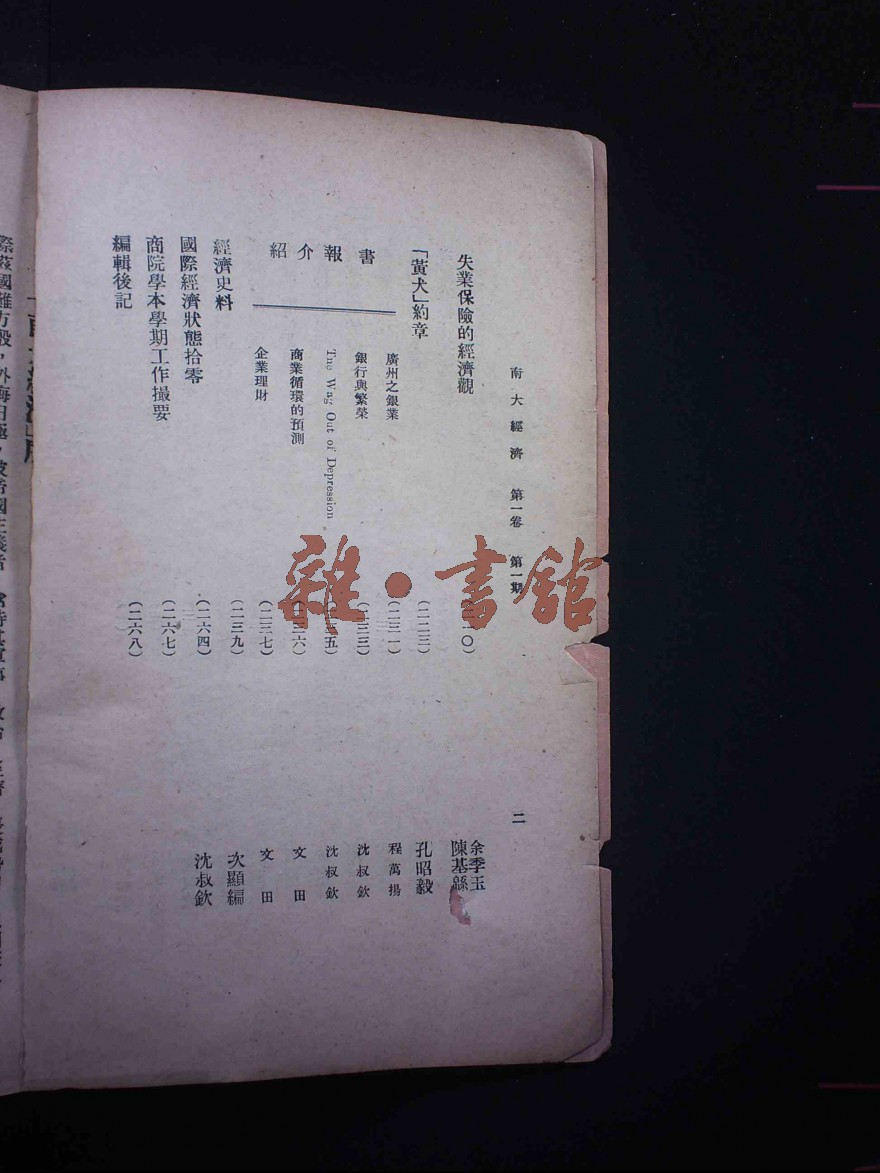 南大經濟 第一卷 第一期
二
失業保險的經濟觀
余季玉
陳基
「黃犬」約章
(二二三)
孔昭毅
書報介紹
廣州之銀業
(二三一)
程萬揚
銀行與繁榮
(二三三)
沈叔欽
Tne Wag Out of Depression
沈叔欽
商業循環的預測
文田
企業理財
(二三七)
文田
經濟史料
(二三九)
次顯編
國際經濟狀態拾零
(二六四)
沈叔欽
商院學本學期工作撮要
(二六七)
編輯後記
(二六八)
雜·書館